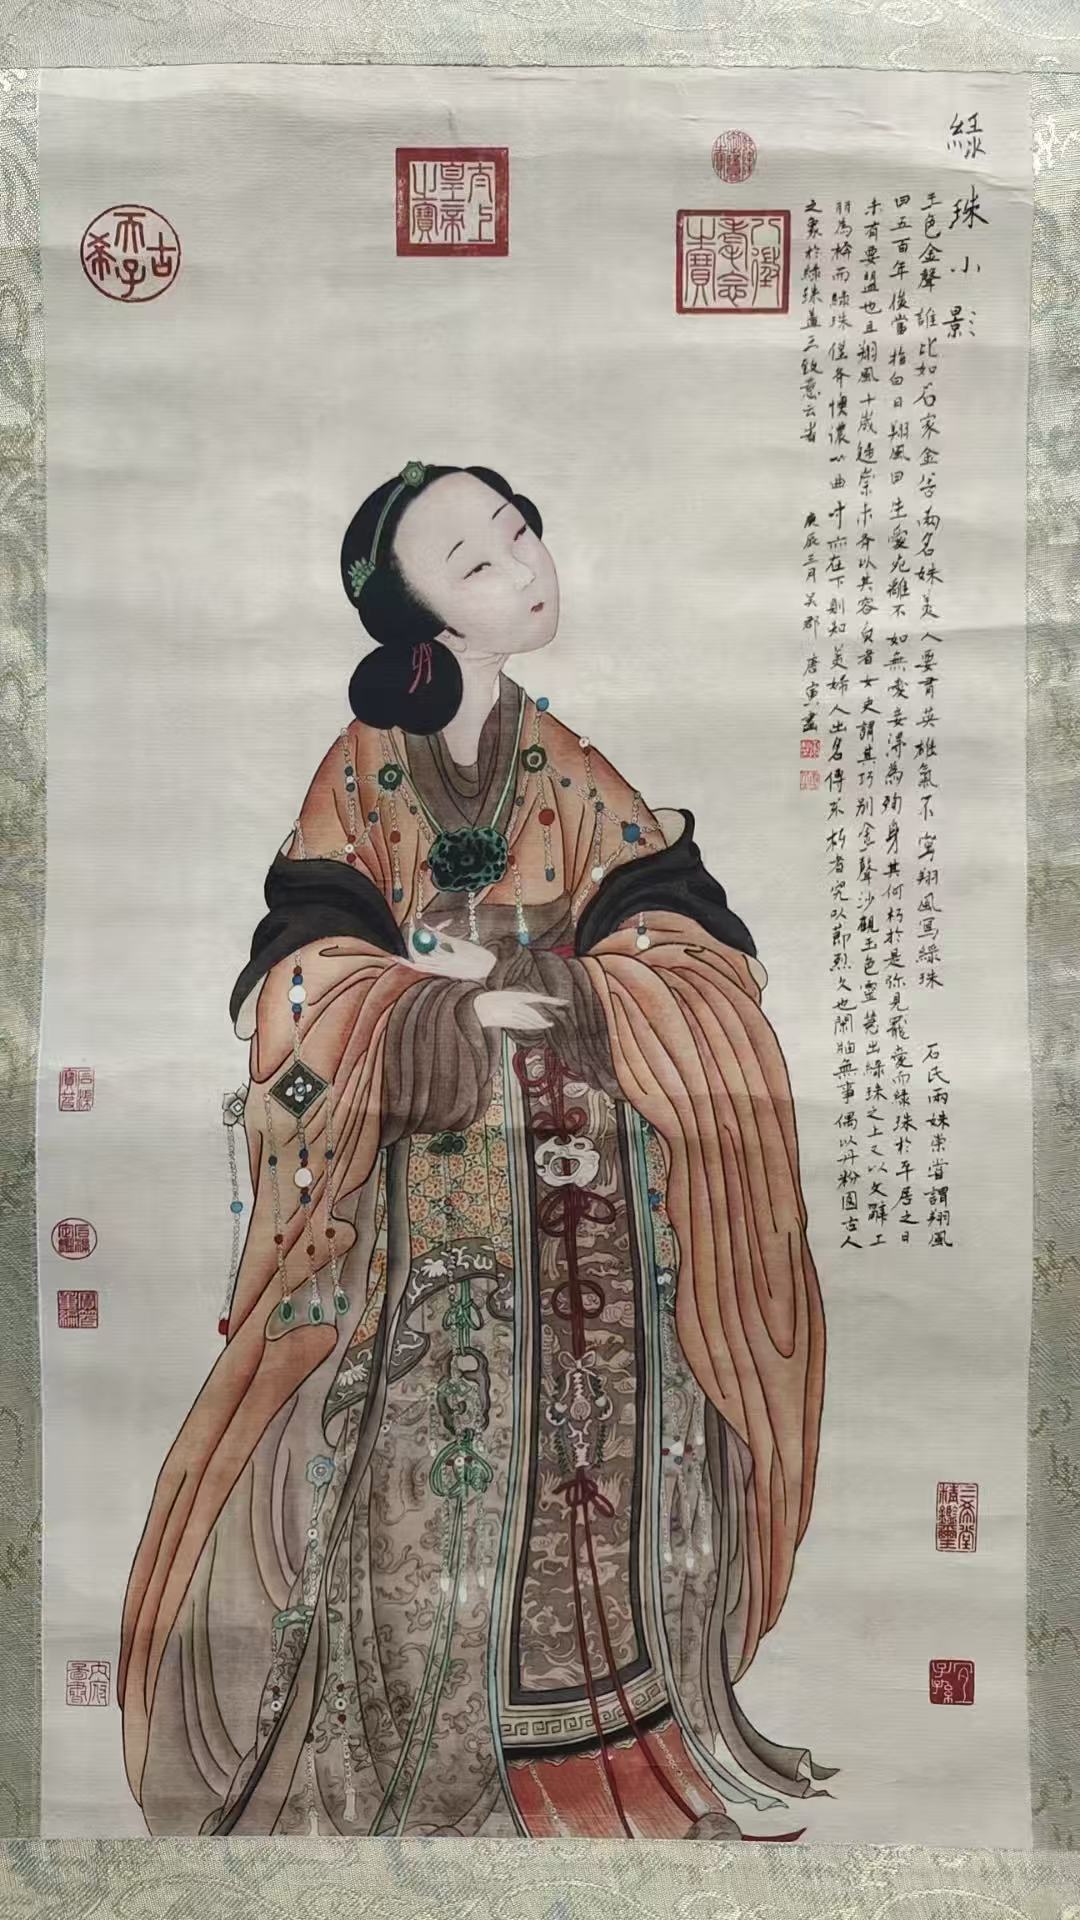 綠珠小影
玉色金聲誰比如石家金谷兩名姝美人要有英雄氣不寫翔風寫綠珠
石氏兩姝崇嘗謂翔風
曰五百年後當指白日翔風曰生愛死離不如無愛妾得為殉身其何朽於是弥見寵愛而綠珠於平居之日
未有要盟也且翔風十歲
以其容
者女史謂其巧別金聲沙觀玉色靈
出綠珠之上又以文辭工
而綠珠僅
以曲
在下則知美婦人出名傳不朽者究以節烈久也閑牕無事偶以丹粉圖古人
之象於綠珠蓋三致意云
庚辰三月吳郡唐寅畫
古希天子
太上皇帝之寶
八徵耄念之寶
石渠寶笈
石渠定鑑
寶笈重編
三希堂精鑑璽
宜子孫